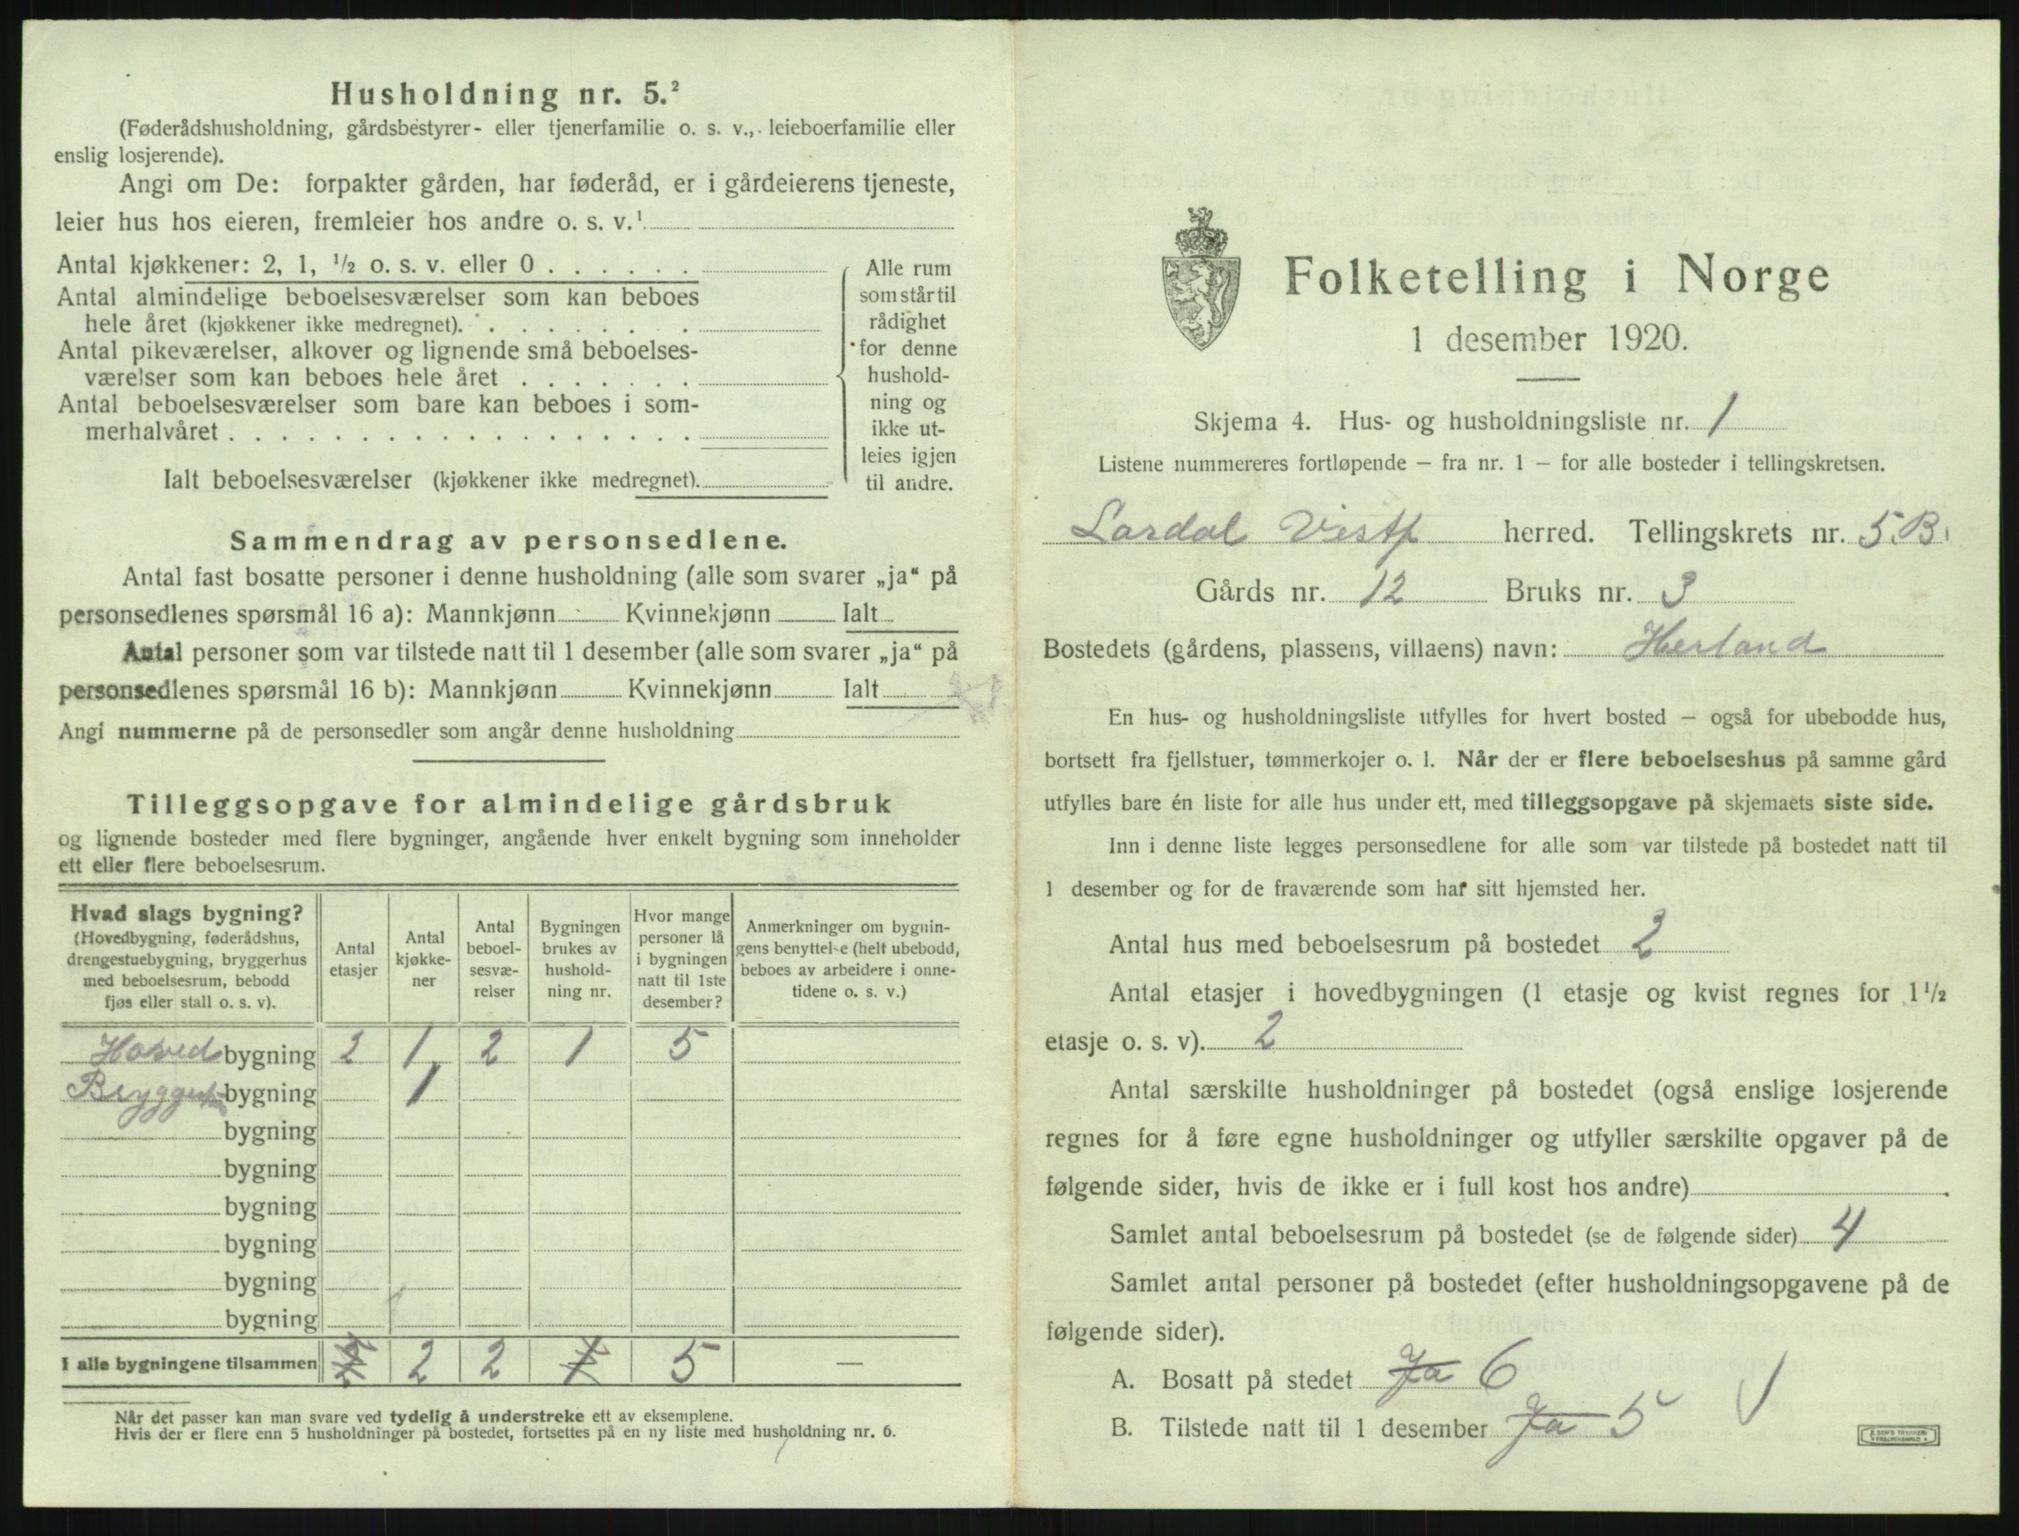 Husholdning nr. 5.²
(Føderådshusholdning, gårdsbestyrer- eller tjenerfamilie o. s. v., leieboerfamilie eller
enslig losjerende).
Angi om De: forpakter gården, har føderåd, er i gårdeierens tjeneste,
leier hus hos eieren, fremleier hos andre o. s. v.¹
Antal kjøkkener: 2, 1, ½ o. s. v. eller 0 . . . . . .
Antal almindelige beboelsesværelser som kan beboes
hele året (kjøkkener ikke medregnet). . . . . . . . .
Antal pikeværelser, alkover og lignende små beboelses-
værelser som kan beboes hele året . . . . . . .
Antal beboelsesværelser som bare kan beboes i som-
merhalvåret . . . . . . . . . . . . . . . . . .
Ialt beboelsesværelser (kjøkkener ikke medregnet).
Alle rum
som står til
rådighet
for denne
hushold-
ning og
ikke ut-
leies igjen
til andre.
Sammendrag av personsedlene.
Antal fast bosatte personer i denne husholdning (alle som svarer „ja“ på
personsedlenes spørsmål 16 a): Mannkjønn Kvinnekjønn Ialt
Antal personer som var tilstede natt til 1 desember (alle som svarer „ja“ på
personsedlenes spørsmål 16 b): Mannkjønn Kvinnekjønn Ialt
Angi nummerne på de personsedler som angår denne husholdning
Tilleggsopgave for almindelige gårdsbruk
og lignende bosteder med flere bygninger, angående hver enkelt bygning som inneholder
ett eller flere beboelsesrum.
Hvad slags bygning?
(Hovedbygning, føderådshus,
drengestuebygning, bryggerhus
med beboelsesrum, bebodd
fjøs eller stall o. s. v).
Antal
etasjer
Antal
kjøkke-
ner
Antal
beboel-
sesvæ-
relser
Bygningen
brukes av
hushold-
ning nr.
Hvor mange
personer lå
i bygningen
natt til 1ste
desember?
Anmerkninger om bygnin-
gens benyttelse (helt ubebodd,
beboes av arbeidere i onne-
tidene o. s. v.)
Hovedbygning 2 1 2 1 5
Bryggerhusbygning 1
bygning
bygning
bygning
bygning
bygning
bygning
I alle bygningene tilsammen 2 2 1 5 —
Når det passer kan man svare ved tydelig å understreke ett av eksemplene.
Hvis der er flere enn 5 husholdninger på bostedet, fortsettes på en ny liste med husholdning nr. 6.
Folketelling i Norge
1 desember 1920.
Skjema 4. Hus- og husholdningsliste nr. 1
Listene nummereres fortløpende – fra nr. 1 – for alle bosteder i tellingskretsen.
Lardal Vestf herred. Tellingskrets nr. 5.B.
Gårds nr. 12 Bruks nr. 3
Bostedets (gårdens, plassens, villaens) navn: Herland
En hus- og husholdningsliste utfylles for hvert bosted – også for ubebodde hus,
bortsett fra fjellstuer, tømmerkojer o. l. Når der er flere beboelseshus på samme gård
utfylles bare én liste for alle hus under ett, med tilleggsopgave på skjemaets siste side.
Inn i denne liste legges personsedlene for alle som var tilstede på bostedet natt til
1 desember og for de fraværende som har sitt hjemsted her.
Antal hus med beboelsesrum på bostedet 2
Antal etasjer i hovedbygningen (1 etasje og kvist regnes for 1½
etasje o. s. v). 2
Antal særskilte husholdninger på bostedet (også enslige losjerende
regnes for å føre egne husholdninger og utfyller særskilte opgaver på de
følgende sider, hvis de ikke er i full kost hos andre)
Samlet antal beboelsesrum på bostedet (se de følgende sider) 4
Samlet antal personer på bostedet (efter husholdningsopgavene på de
følgende sider).
A. Bosatt på stedet Ja 6
B. Tilstede natt til 1 desember Ja 5